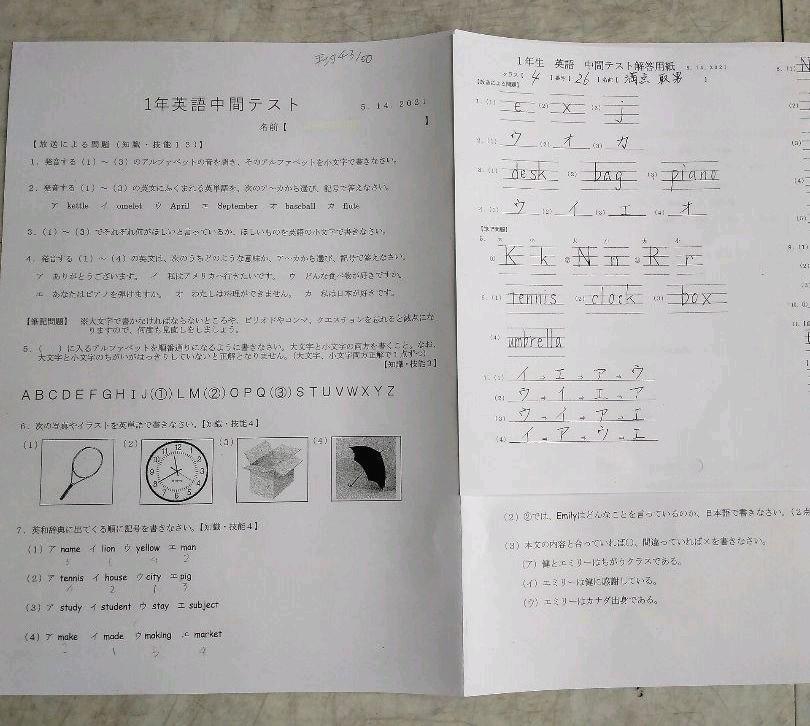 平均43/50
1年英語中間テスト
5．14．2021
名前【 】
【放送による問題（知識・技能13）】
1．発音する（1）～（3）のアルファベットの音を聞き、そのアルファベットを小文字で書きなさい。
2．発音する（1）～（3）の英文にふくまれる英単語を、次のア～カから選び、記号で答えなさい。
ア kettle イ omelet ウ April エ September オ baseball カ flute
3．（1）～（3）でそれぞれ何がほしいと言っているか、ほしいものを英語の小文字で書きなさい。
4．発音する（1）～（4）の英文は、次のうちどのような意味か、ア～カから選び、記号で答えなさい。
ア ありがとうございます。 イ 私はアメリカへ行きたいです。 ウ どんな食べ物が好きですか。
エ あなたはピアノを弾けますか。 オ わたしは料理ができません。 カ 私は日本が好きです。
【筆記問題】 ※大文字で書かなければならないところや、ピリオドやコンマ、クエスチョンを忘れると減点にな
りますので、何度も見直しをしましょう。
5．（ ）に入るアルファベットを順番通りになるように書きなさい。大文字と小文字の両方を書くこと。なお、
大文字と小文字のちがいがはっきりしていないと正解となりません。（大文字、小文字両方正解で1点ずつ）
【知識・技能3】
ABCDEFGHIJ(①)LM(②)OPQ(③)STUVWXYZ
6．次の写真やイラストを英単語で書きなさい。【知識・技能4】
（1） （2） （3） （4）
7．英和辞典に出てくる順に記号を書きなさい。【知識・技能4】
（1）ア name イ lion ウ yellow エ man
3 1 4 2
（2）ア tennis イ house ウ city エ pig
4 2 1 3
（3）ア study イ student ウ stay エ subject
（4）ア make イ made ウ making エ market
1 3 4
1年生 英語 中間テスト解答用紙 5．14．2021
クラス【 4 】番号【 26 】名前【 満点 取男 】
【放送による問題】
1．（1） e （2） x （3） j
2．（1） ウ （2） オ （3） カ
3．（1） desk （2） bag （3） piano
4．（1） ウ （2） イ （3） エ （4） オ
【筆記問題】
5． 大 小 大 小 大 小
① K k ② N n ③ R r
6．（1） tennis （2） clock （3） box
（4） umbrella
7．（1） イ → エ → ア → ウ
（2） ウ → イ → エ → ア
（3） ウ → イ → ア → エ
（4） イ → ア → ウ → エ
（2）②では、Emilyはどんなことを言っているのか、日本語で書きなさい。（2点
（3）本文の内容と合っていれば○、間違っていれば×を書きなさい。
（ア）健とエミリーはちがうクラスである。
（イ）エミリーは健に感謝している。
（ウ）エミリーはカナダ出身である。